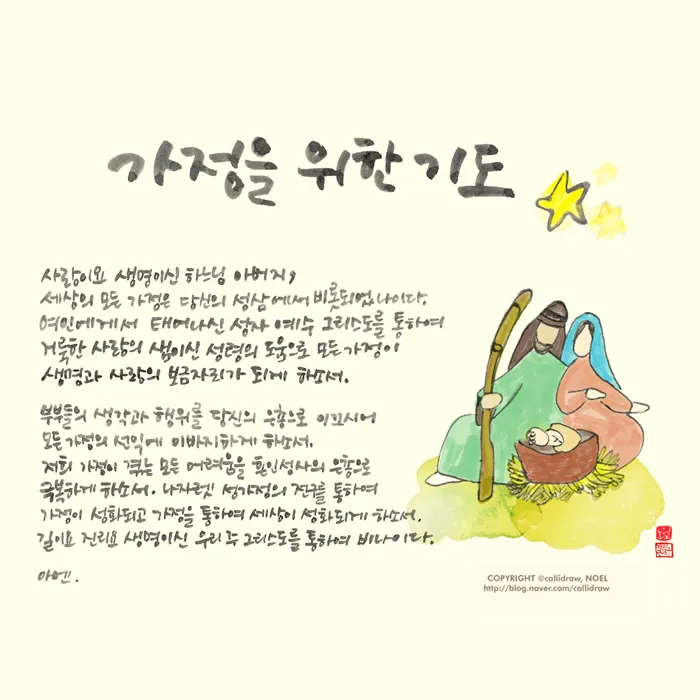 가정을 위한 기도
사랑이요 생명이신 하느님 아버지,
세상의 모든 가정은 당신의 성삼에서 비롯되었나이다.
여인에게서 태어나신 성자 예수 그리스도를 통하여
거룩한 사랑의 샘이신 성령의 도움으로 모든 가정이
생명과 사랑의 보금자리가 되게 하소서.
부부들의 생각과 행위를 당신의 은총으로 이끄시어
모든 가정의 선익에 이바지하게 하소서.
저희 가정이 겪는 모든 어려움을 혼인성사의 은총으로
극복하게 하소서. 나자렛 성가정의 전구를 통하여
가정이 성화되고 가정을 통하여 세상이 성화되게 하소서.
길이요 진리요 생명이신 우리 주 그리스도를 통하여 비나이다.
아멘.
COPYRIGHT ©callidraw, NOEL
http://blog.naver.com/callidraw